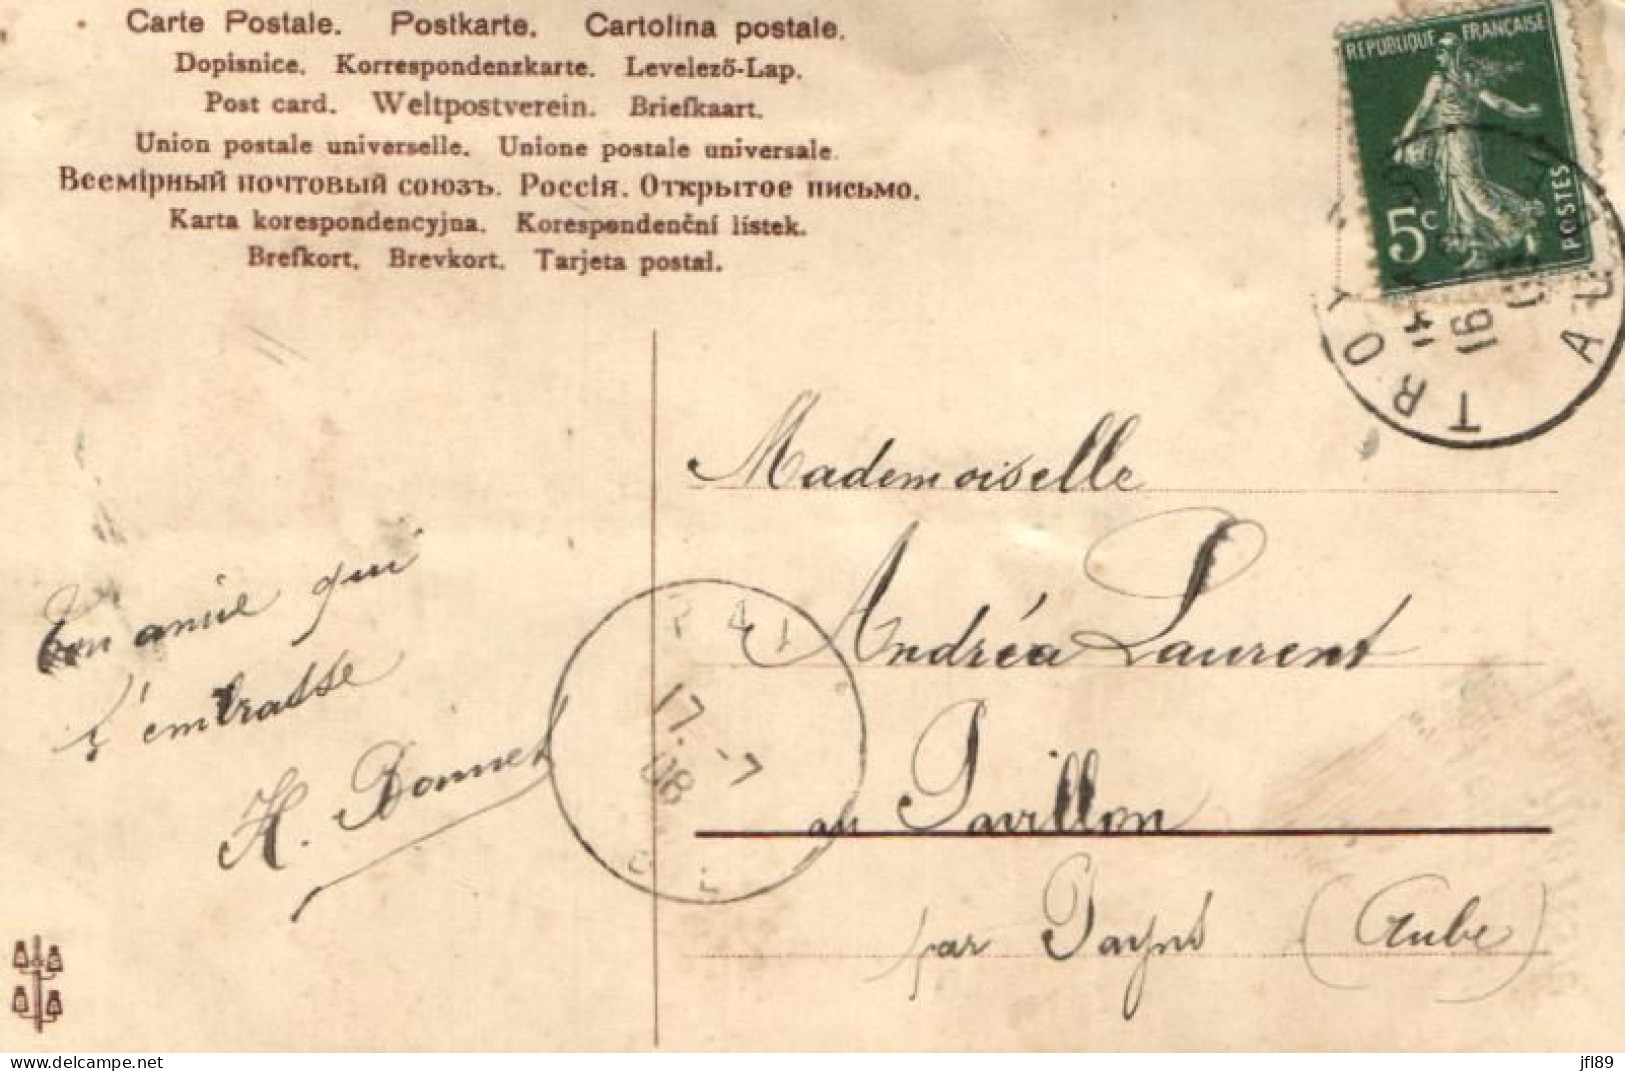 Carte Postale. Postkarte. Cartolina postale.
Dopisnice. Korrespondenzkarte. Levelező-Lap.
Post card. Weltpostverein. Briefkaart.
Union postale universelle. Unione postale universale.
Всемірный почтовый союзъ. Россія. Открытое письмо.
Karta korespondencyjna. Korespondenční lístek.
Brefkort. Brevkort. Tarjeta postal.
REPUBLIQUE FRANÇAISE
5c
POSTES
TROY
16
Mademoiselle
Andréa Laurent
au Pavillon
par Payns (Aube)
Ton amie qui
t'embrasse
H. Donnet
17 -7
08
www.delcampe.net
jfl89